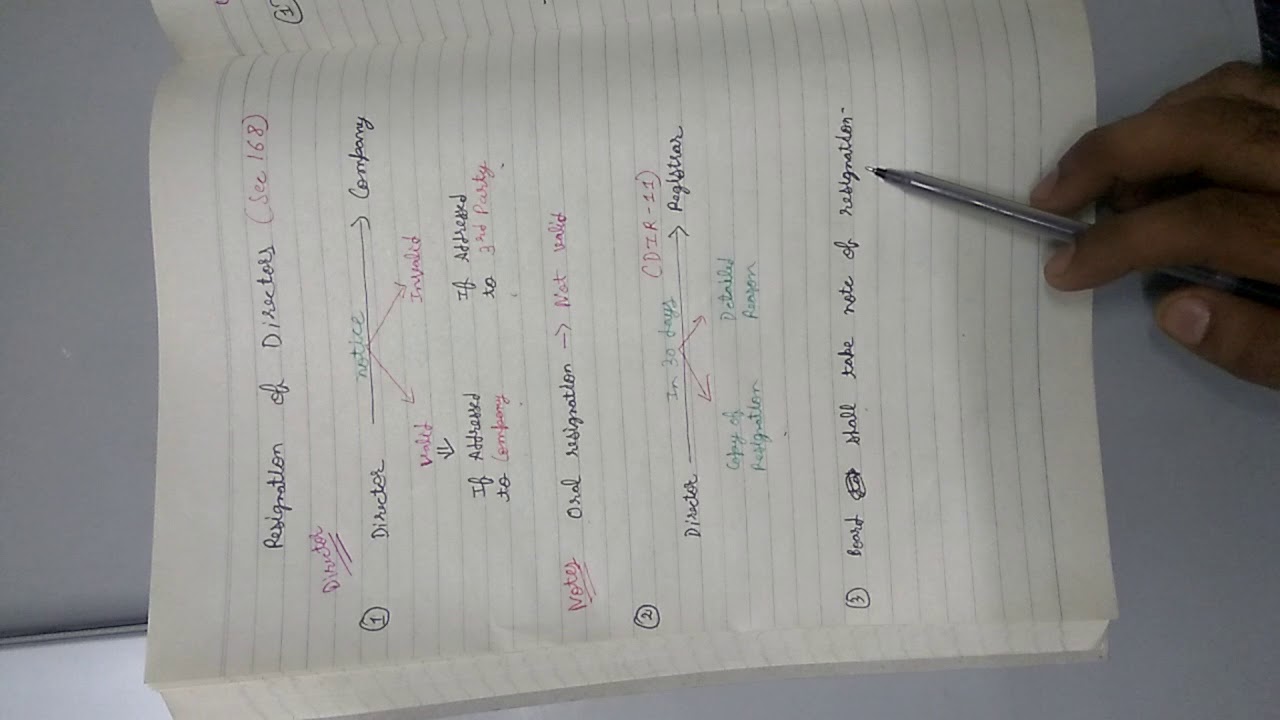 Resignation of Directors (Sec 168)
Director
① Director notice → Company
Valid Invalid
If Addressed to Company
If Addressed to 3rd Party
Notes Oral resignation → Not valid
② Director In 30 days (DIR-11) → Registrar
Copy of Resignation
Detailed Reason
③ Board shall take note of resignation.